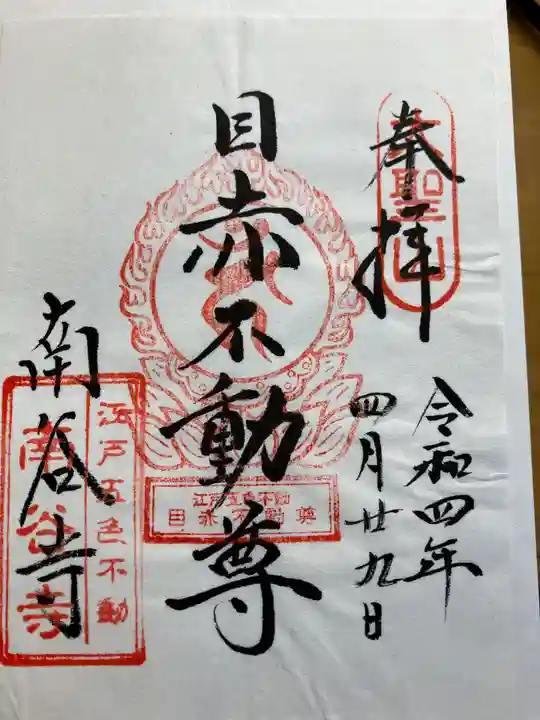 奉拝
令和四年
四月廿九日
目赤不動尊
江戸五色不動
目赤不動尊
南谷寺
江戸五色不動
南谷寺